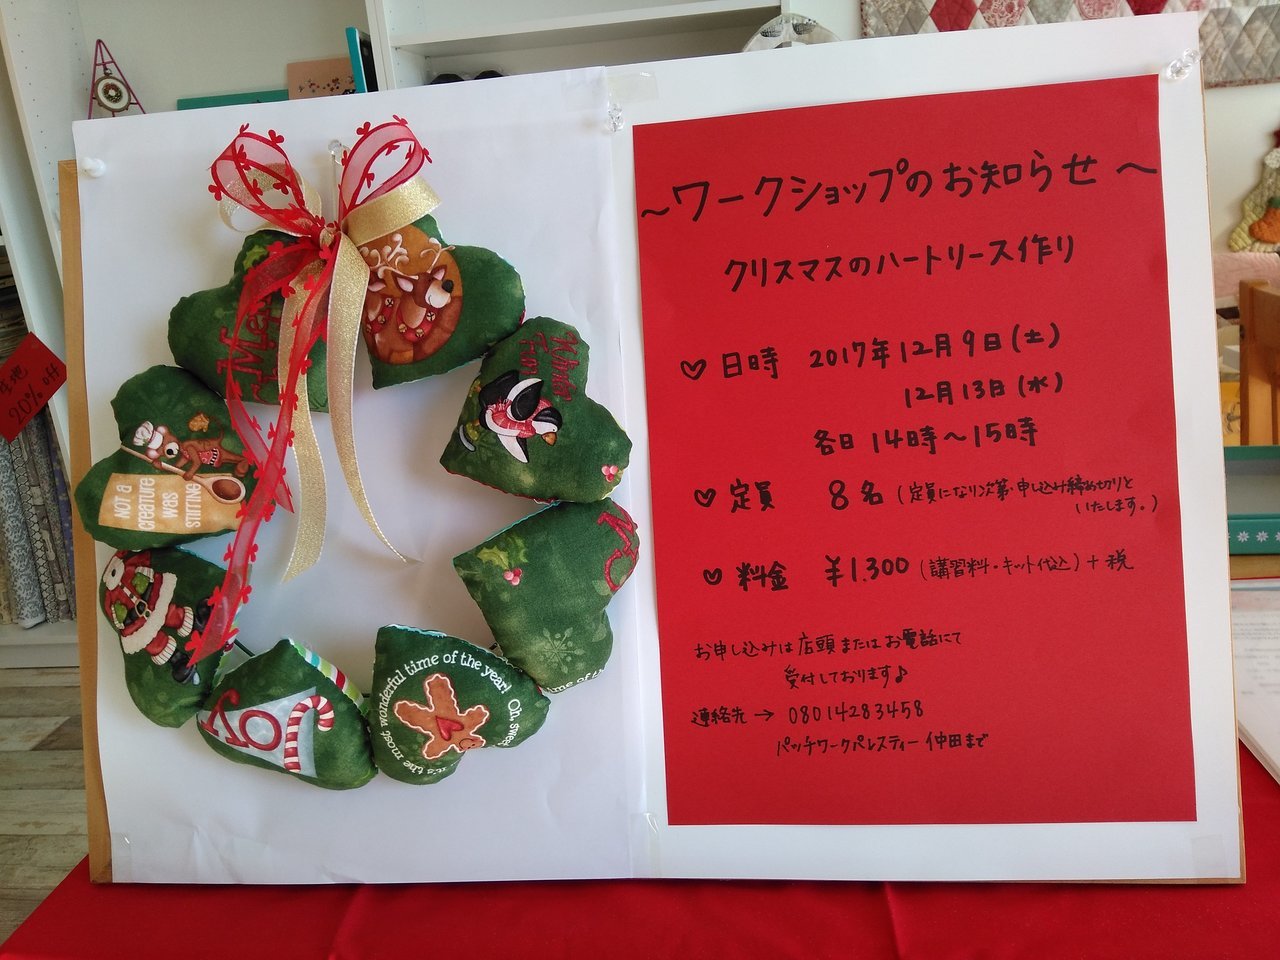 ～ワークショップのお知らせ～
クリスマスのハートリース作り
♡日時 2017年12月9日(土)
12月13日(水)
各日 14時～15時
♡定員 8名 (定員になり次第・申し込み締め切りと
いたします。)
♡料金 ¥1.300 (講習料・キット代込)+税
お申し込みは店頭またはお電話にて
受付しております♪
連絡先→ 08014283458
パッチワークパレスティー 仲田まで
NOT A
CREATURE
WAS
STIRRING
it's the most wonderful time of the year! Oh,
JOY
time of th
生地
20% off